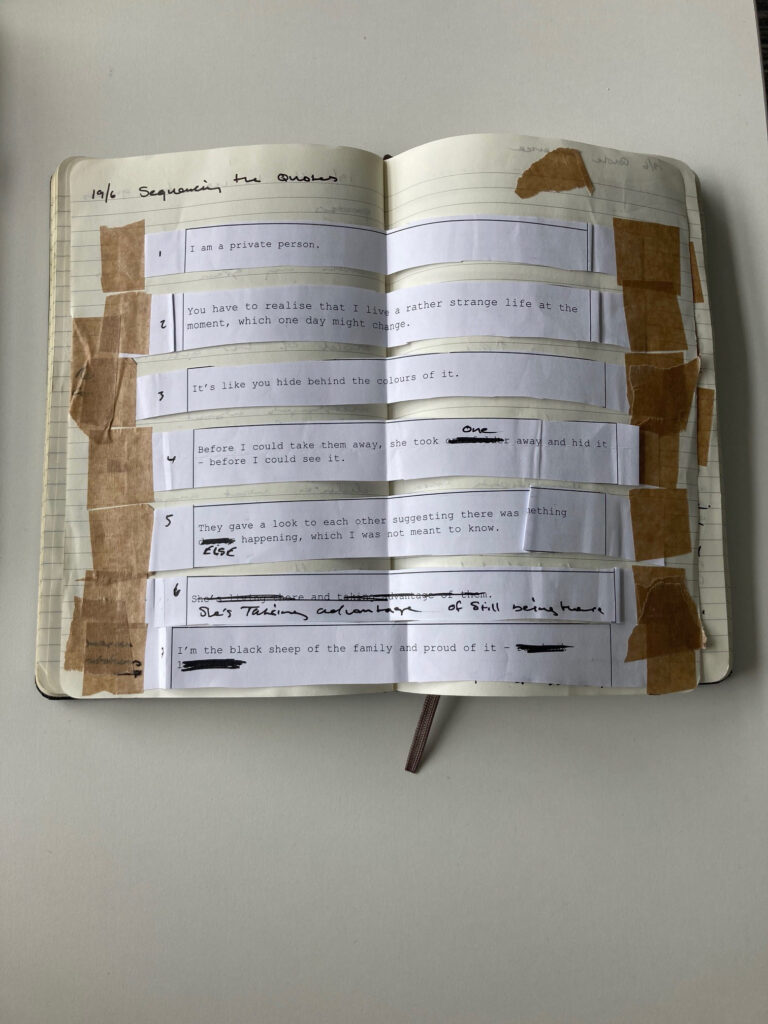 19/6 Sequencing the Quotes
1 I am a private person.
2 You have to realise that I live a rather strange life at the
moment, which one day might change.
3 It's like you hide behind the colours of it.
One
4 Before I could take them away, she took away and hid it
– before I could see it.
5 They gave a look to each other suggesting there was mething
happening, which I was not meant to know.
ELSE
6 She's living there and taking advantage of them.
She's Taking advantage of still being there
7 I'm the black sheep of the family and proud of it –